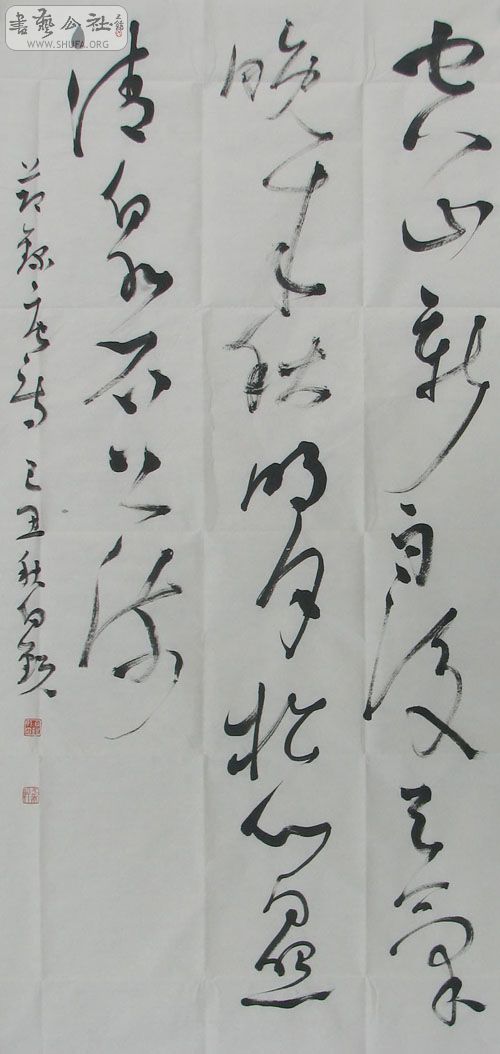 書藝公社
WWW.SHUFA.ORG
空山新雨後天氣
晚來秋明月松间照
清泉石上流
節錄唐詩己丑秋